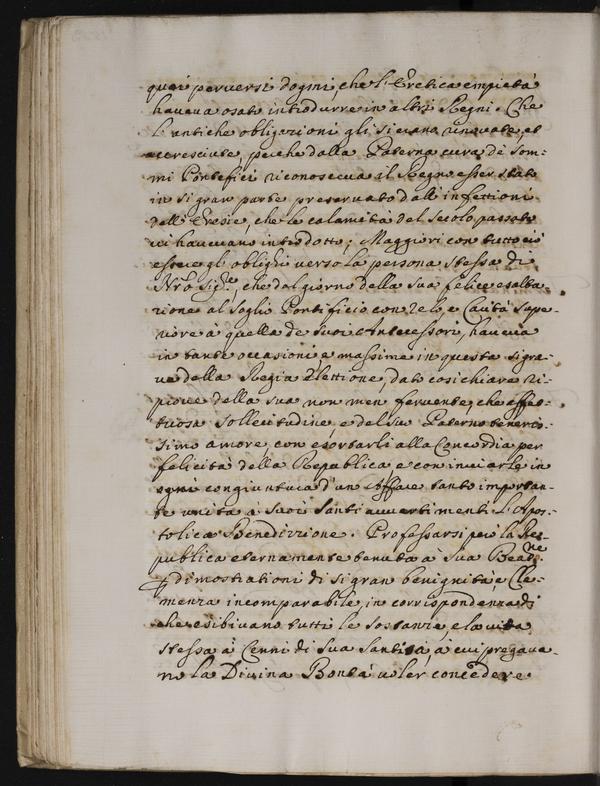 quei perversi dogmi, che l'Eretica empietà
haveva osato introdurre in altri Regni. Che
l'antiche obligazioni gli si erano rinovate, et
accresciute, perche dalla Paterna cura de Som-
mi Pontefici riconosceva il Regno esser stato
in si gran parte preservato dall'infettioni
dell'Eresie, che le calamità del secolo passato
vi havevano introdotto; Maggiori con tutto ciò
essere gl'oblighi verso la persona stessa di
Nrõ Sig.re, che dal giorno della sua felice esalta-
zione al soglio Pontificio con zelo, e Carità supe-
riore à quella de suoi Antecessori, haveva
in tante occasioni, e massime in questa si gra-
ve della Regia Elettione, dato cosi chiare ri-
prove della sua non men fervente, che affet-
tuosa sollecitudine, e del suo Paterno teneris-
simo amore, con esortarli alla Concordia per
felicità della Republica, e con inviarle in
ogni congiuntura d'un Affare tanto importan-
te unita a suoi Santi avvertimenti l'Apos-
tolica Benedizzione. Professarsi però la Re-
publica eternamente tenuta à Sua Beat.ne
p dimostrationi di si gran benignità, e Cle-
menza incomparabile, in corrispondenza di
che esibivano tutti le sostanze, e la vita
stessa à Cenni di Sua Santità, à cui pregava-
no la Divina Bontà voler concedere